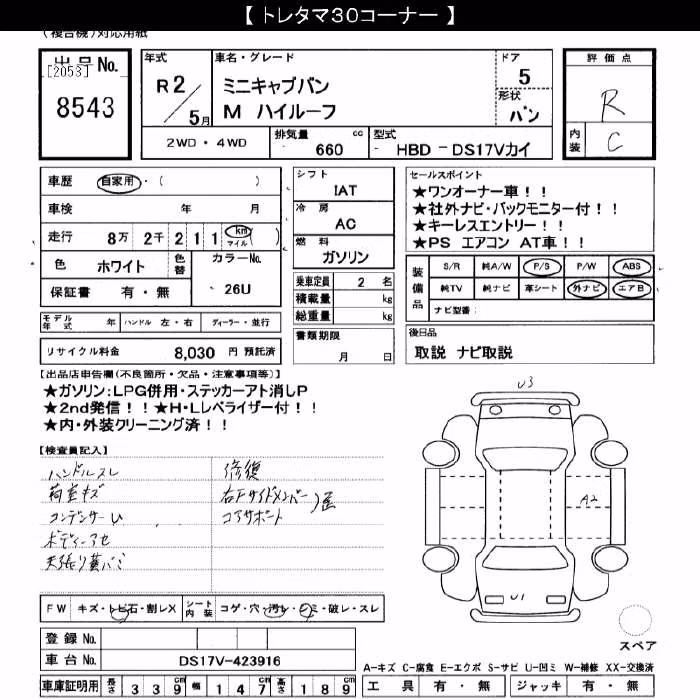 【 トレタマ30コーナー 】
(複合機)対応用紙
出品No.
[2053]
8543
年式
R 2/5月
車名・グレード
ミニキャブバン
M ハイルーフ
ドア
5
形状
バン
評価点
R
内装
C
2WD・4WD
排気量
660 cc
型式
HBD －DS17Vカイ
車歴 自家用・( )
車検 年 月
走行 8万 2千 2 1 1 km マイル ( )
色 ホワイト 色替
カラーNo.
26U
保証書 有・無
シフト
IAT
冷房
AC
燃料
ガソリン
乗車定員 2 名
積載量 kg
総重量 kg
セールスポイント
★ワンオーナー車！！
★社外ナビ・バックモニター付！！
★キーレスエントリー！！
★PS エアコン AT車！！
装備品
S/R 純A/W P/S P/W ABS
純TV 純ナビ 革シート 外ナビ エアB
ナビ型番:
モデル年式 年 ハンドル 左・右 ディーラー・並行
書類期限
月 日
後日品
取説 ナビ取説
リサイクル料金 8,030 円 預託済
【出品店申告欄(不良箇所・欠品・注意事項等)】
★ガソリン:LPG併用・ステッカーアト消しP
★2nd発信！！★H・Lレベライザー付！！
★内・外装クリーニング済！！
【検査員記入】
ハンドルスレ
荷室キズ
コンデンサーU
ボディーアセ
天張り黄バミ
修復
右Fサイドメンバー
コアサポート
U3
A2
U1
FW キズ・トビ石・割レX
シート内装 コゲ・穴・汚レ・シミ・破レ・スレ
登録No.
車台No. DS17V-423916
スペア
A-キズ C-腐食 E-エクボ S-サビ U-凹ミ W-補修 XX-交換済
車庫証明用 長さ 3 3 9cm 幅 1 4 7cm 高さ 1 8 9cm
工具 有・無 ジャッキ 有・無